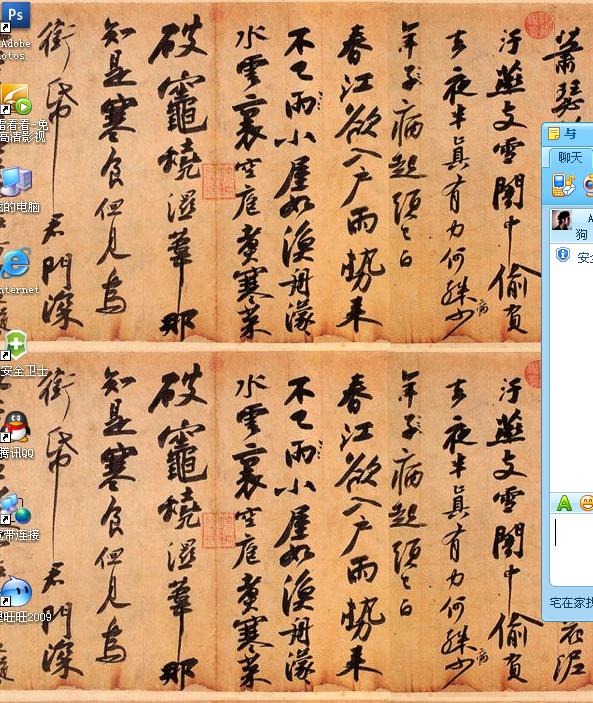 Ps
Adobe
otos...
看看-免
高清影视
的电脑
nternet
安全卫士
腾讯QQ
带连接
旺旺2009
蕭瑟
汙燕支雪闇中偷負
去夜半真有力何殊少
病
年子病起頭已白
春江欲入戶雨勢來
不已雨小屋如漁舟濛
水雲裏空庖煮寒菜
破竈燒溼葦那
知是寒食但見烏
銜帋君門深
泥
汙燕支雪闇中偷負
去夜半真有力何殊少
病
年子病起頭已白
春江欲入戶雨勢來
不已雨小屋如漁舟濛
水雲裏空庖煮寒菜
破竈燒溼葦那
知是寒食但見烏
銜帋君門深
与
聊天
A
狗
安全
宅在家找